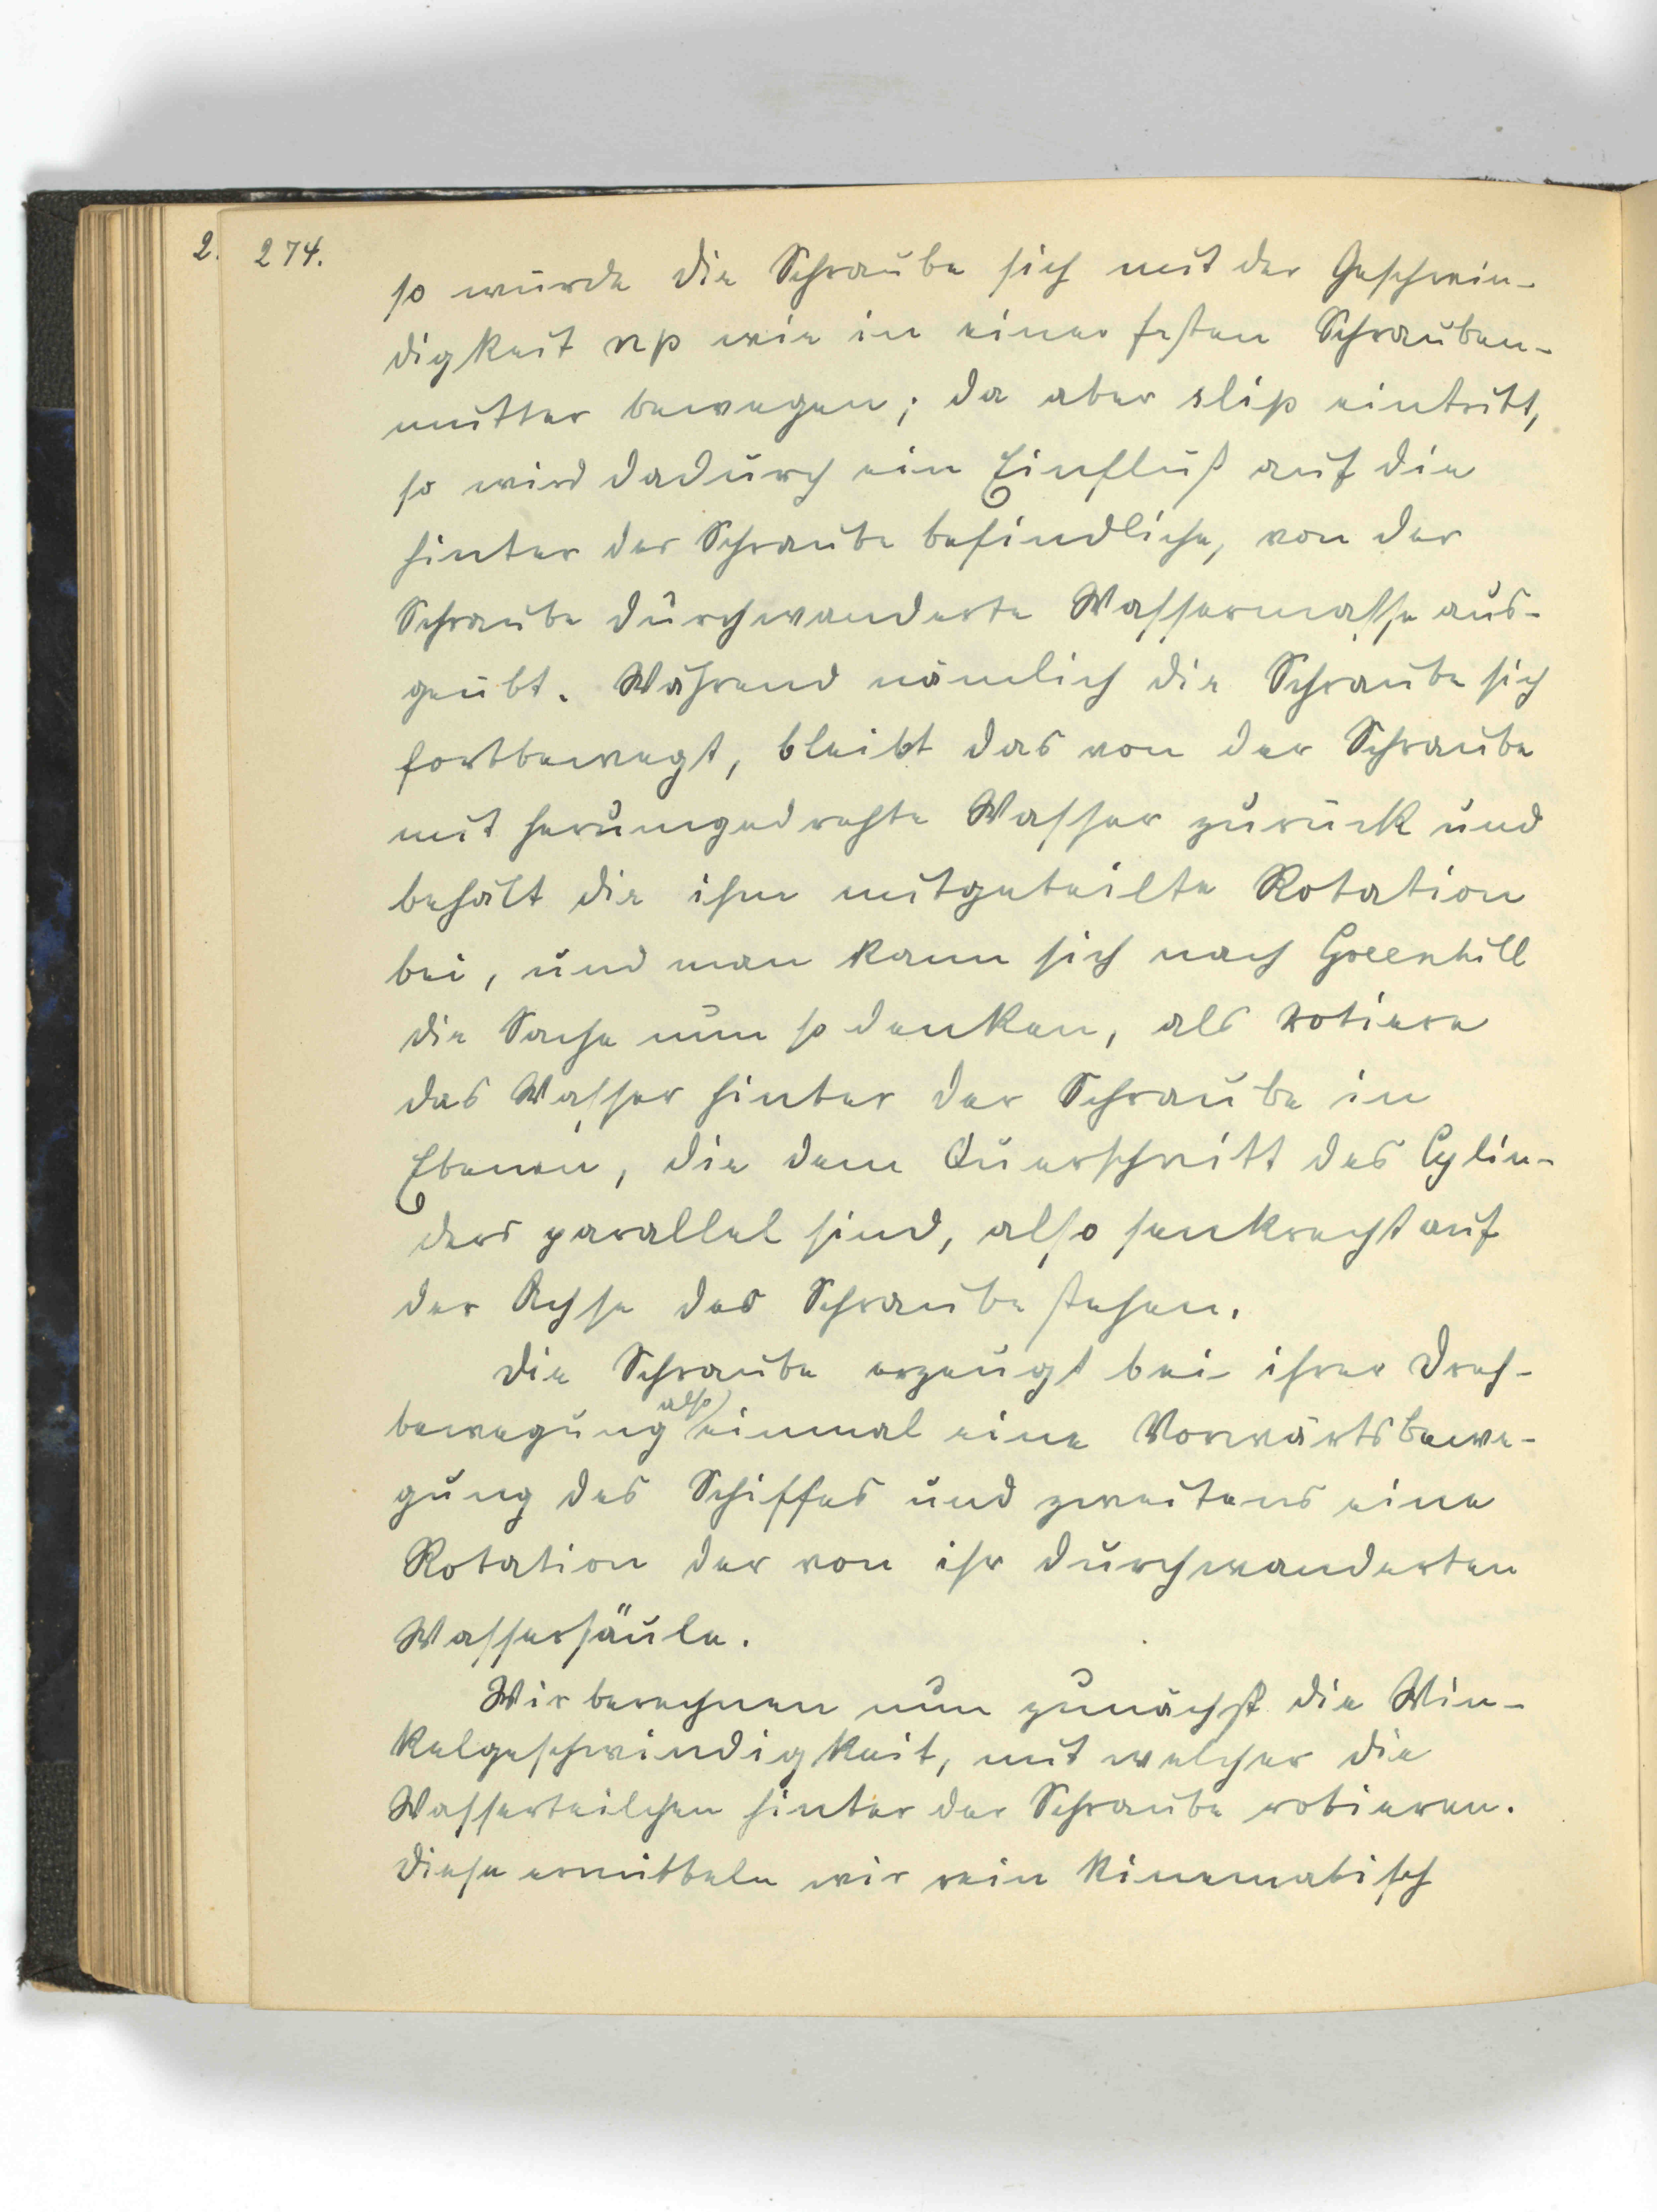 2.
274.
so würde die Schraube sich mit der Geschwin-
digkeit np wie in einer festen Schrauben-
mutter bewegen; da aber slip eintritt,
so wird dadurch ein Einfluß auf die
hinter der Schraube befindliche, von der
Schraube durchwanderte Wassermasse aus-
geübt. Während nämlich die Schraube sich
fortbewegt, bleibt das von der Schraube
mit herumgedrehte Wasser zurück und
behält die ihm mitgeteilte Rotation
bei, und man kann sich nach Greenhill
die Sache nun so denken, als rotiere
das Wasser hinter der Schraube in
Ebenen, die dem Querschnitt des Cylin-
ders parallel sind, also senkrecht auf
der Achse der Schraube stehen.
Die Schraube erzeugt bei ihrer Dreh-
bewegung also einmal eine Vorwärtsbewe-
gung des Schiffes und zweitens eine
Rotation der von ihr durchwanderten
Wassersäule.
Wir berechnen nun zunächst die Win-
kelgeschwindigkeit, mit welcher die
Wasserteilchen hinter der Schraube rotieren.
Diese ermitteln wir rein kinematisch